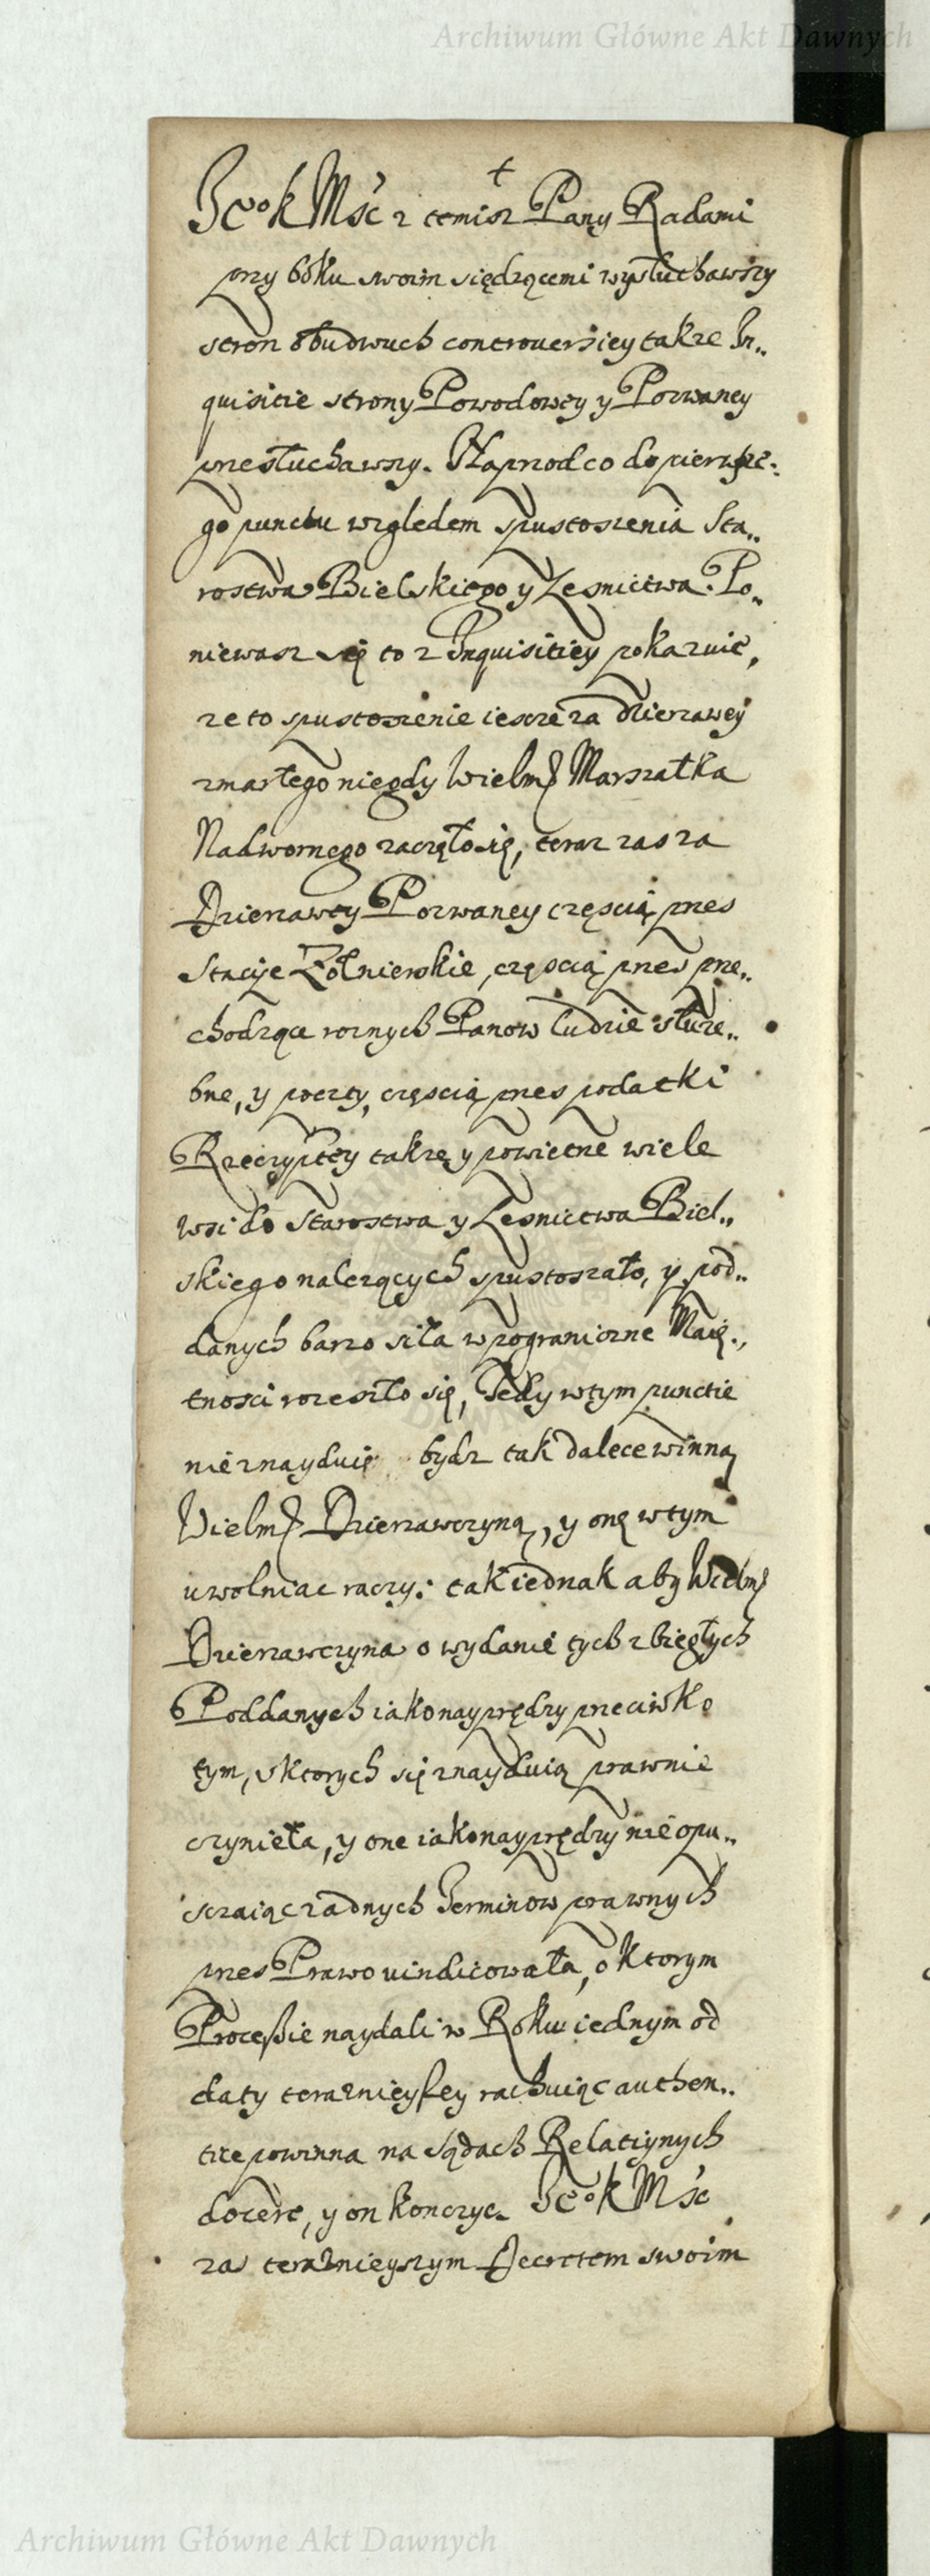 Archiwum Główne Akt Dawnych
Je° k Mść z temisz Pany Radami
przy boku swoim siędzącemi wysłuchawszy
stron obudwuch controuersiey takze In„
quisitie strony Powodowey y Pozwaney
przesłuchawszy. Naprzod co do pierwsze„
go punctu względem spustoszenia Sta„
rostwa Bielskiego y Lesnictwa. Po„
niewasz się to z Inquisitiey pokazuie,
ze to spustoszenie iescze za dzierzawey
zmarłego niegdy Wielmo Marszałka
Nadwornego zaczęło się, teraz zas za
Dzierzawey Pozwaney częscią przes
Stacije Zołnierskie, częscią przes prze„
chodzące roznych Panow ludzie słuze„
bne, y poczty, częscią przes podatki
Rzeczyptey takze y powietrze wiele
wsi do Starostwa y Lesnictwa Biel„
skiego nalezących spustoszało, y pod„
danych barzo siła w pograniczne Maię„
tnosci rozeszło się, Tedy w tym punctie
nie znayduię bydz tak dalece winną
Wielmo Dzierzawczyną, y onę w tym
uwolniac raczy: tak iednak aby Wielmo
Dzierzawczyna o wydanie tych zbiegłych
Poddanych iako nayprędzy przeciwko
tym, u ktorych się znayduią prawnie
czynieła, y one iako nayprędzy nie opu„
sczaiąc zadnych Terminow prawnych
przes Prawo uindicowała, o ktorym
Processie naydali w Roku iednym od
daty teraznieyszey rachuiąc authen„
tice powinna na Sądach Relatiynych
docere, y on konczyc. Je° k Mść
zas teraznieyszym Decretem swoim
Archiwum Główne Akt Dawnych